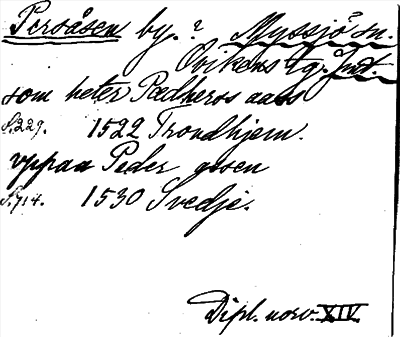 Persåsen by.? Myssjö sn.
Ovikens tg. Jmt.
som heter Pædheros aass
S.229. 1522 Trondhjem.
vppaa Peder aasen
S.714. 1530 Svedje.
Dipl. norv. XIV.